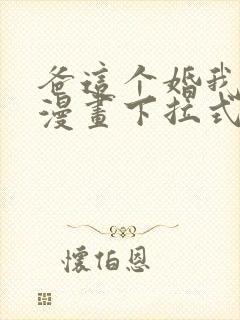 爸這个婚我
漫畫下拉式
懷伯恩